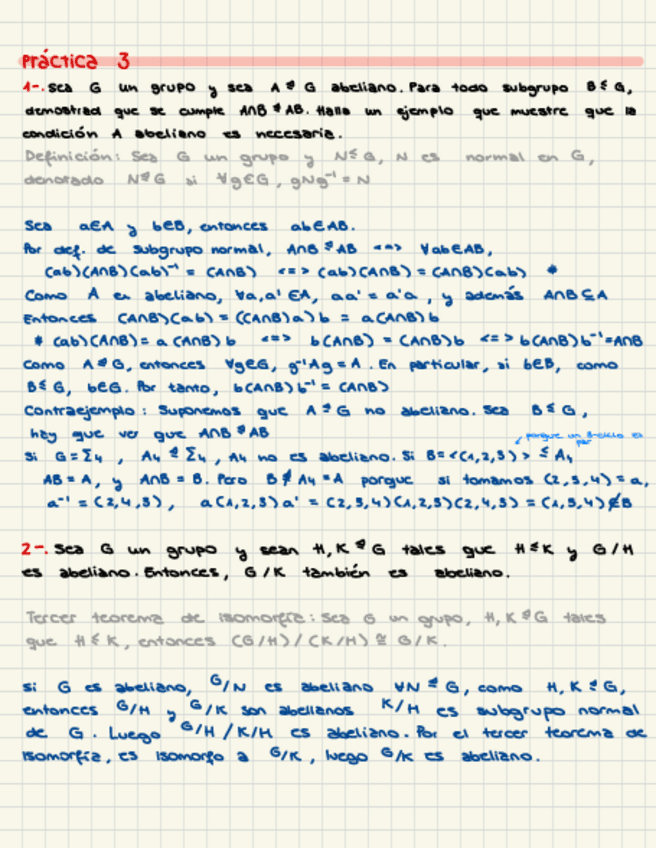 Práctica 3
1-. Sea G un grupo y sea A ⊴ G abeliano. Para todo subgrupo B ≤ G,
demostrad que se cumple A∩B ⊴ AB. Halla un ejemplo que muestre que la
condición A abeliano es necesaria.
Definición: Sea G un grupo y N ≤ G, N es normal en G,
denotado N ⊴ G si ∀g∈G, gNg⁻¹ = N
Sea a∈A y b∈B, entonces ab∈AB.
Por def. de subgrupo normal, A∩B ⊴ AB <=> ∀ab∈AB,
(ab)(A∩B)(ab)⁻¹ = (A∩B) <=> (ab)(A∩B) = (A∩B)(ab) *
Como A es abeliano, ∀a,a' ∈A, aa' = a'a, y además A∩B ⊆ A
Entonces (A∩B)(ab) = ((A∩B)a)b = a(A∩B)b
* (ab)(A∩B) = a(A∩B)b <=> b(A∩B) = (A∩B)b <=> b(A∩B)b⁻¹ = A∩B
Como A ⊴ G, entonces ∀g∈G, g⁻¹Ag = A. En particular, si b∈B, como
B ≤ G, b∈G. Por tanto, b(A∩B)b⁻¹ = (A∩B)
Contraejemplo: Suponemos que A ⊴ G no abeliano. Sea B ≤ G,
hay que ver que A∩B ⋬ AB
porque un 3-ciclo es
par
Si G = Σ₄, A₄ ⊴ Σ₄, A₄ no es abeliano. Si B = <(1,2,3)> ≤ A₄
AB = A, y A∩B = B. Pero B ⋬ A₄ = A porque si tomamos (2,3,4) = a,
a⁻¹ = (2,4,3), a(1,2,3)a' = (2,3,4)(1,2,3)(2,4,3) = (1,3,4) ∉ B
2-. Sea G un grupo y sean H, K ⊴ G tales que H ≤ K y G/H
es abeliano. Entonces, G/K también es abeliano.
Tercer teorema de isomorfía: Sea G un grupo, H, K ⊴ G tales
que H ≤ K, entonces (G/H)/(K/H) ≅ G/K.
Si G es abeliano, G/N es abeliano ∀N ⊴ G, como H, K ⊴ G,
entonces G/H y G/K son abelianos K/H es subgrupo normal
de G. Luego G/H / K/H es abeliano. Por el tercer teorema de
isomorfía, es isomorfo a G/K, luego G/K es abeliano.